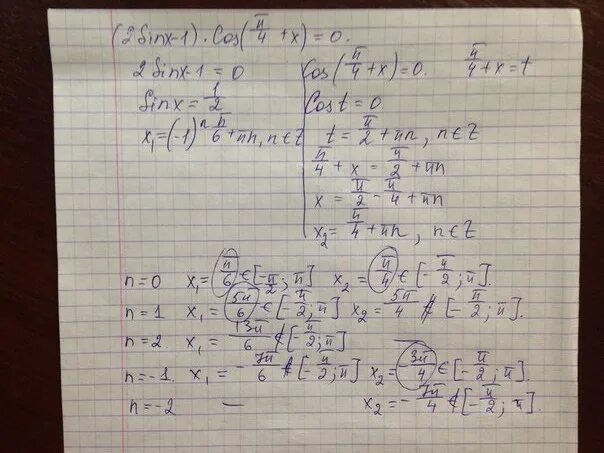 (2Sinx-1)·Cos(π/4 + x) = 0.
2Sinx-1 = 0
Sinx = 1/2
x₁ = (-1)ⁿ π/6 + πn, n∈Z
Cos(π/4 + x) = 0. π/4 + x = t
Cos t = 0
t = π/2 + πn, n∈Z
π/4 + x = π/2 + πn
x = π/2 - π/4 + πn
x₂ = π/4 + πn, n∈Z
n = 0 x₁ = π/6 ∈ [-π/2; π] x₂ = π/4 ∈ [-π/2; π].
n = 1 x₁ = 5π/6 ∈ [-π/2; π] x₂ = 5π/4 ∉ [-π/2; π].
n = 2 x₁ = 13π/6 ∉ [-π/2; π]
n = -1. x₁ = -7π/6 ∉ [-π/2; π] x₂ = -3π/4 ∈ [-π/2; π].
n = -2 — x₂ = -7π/4 ∉ [-π/2; π].